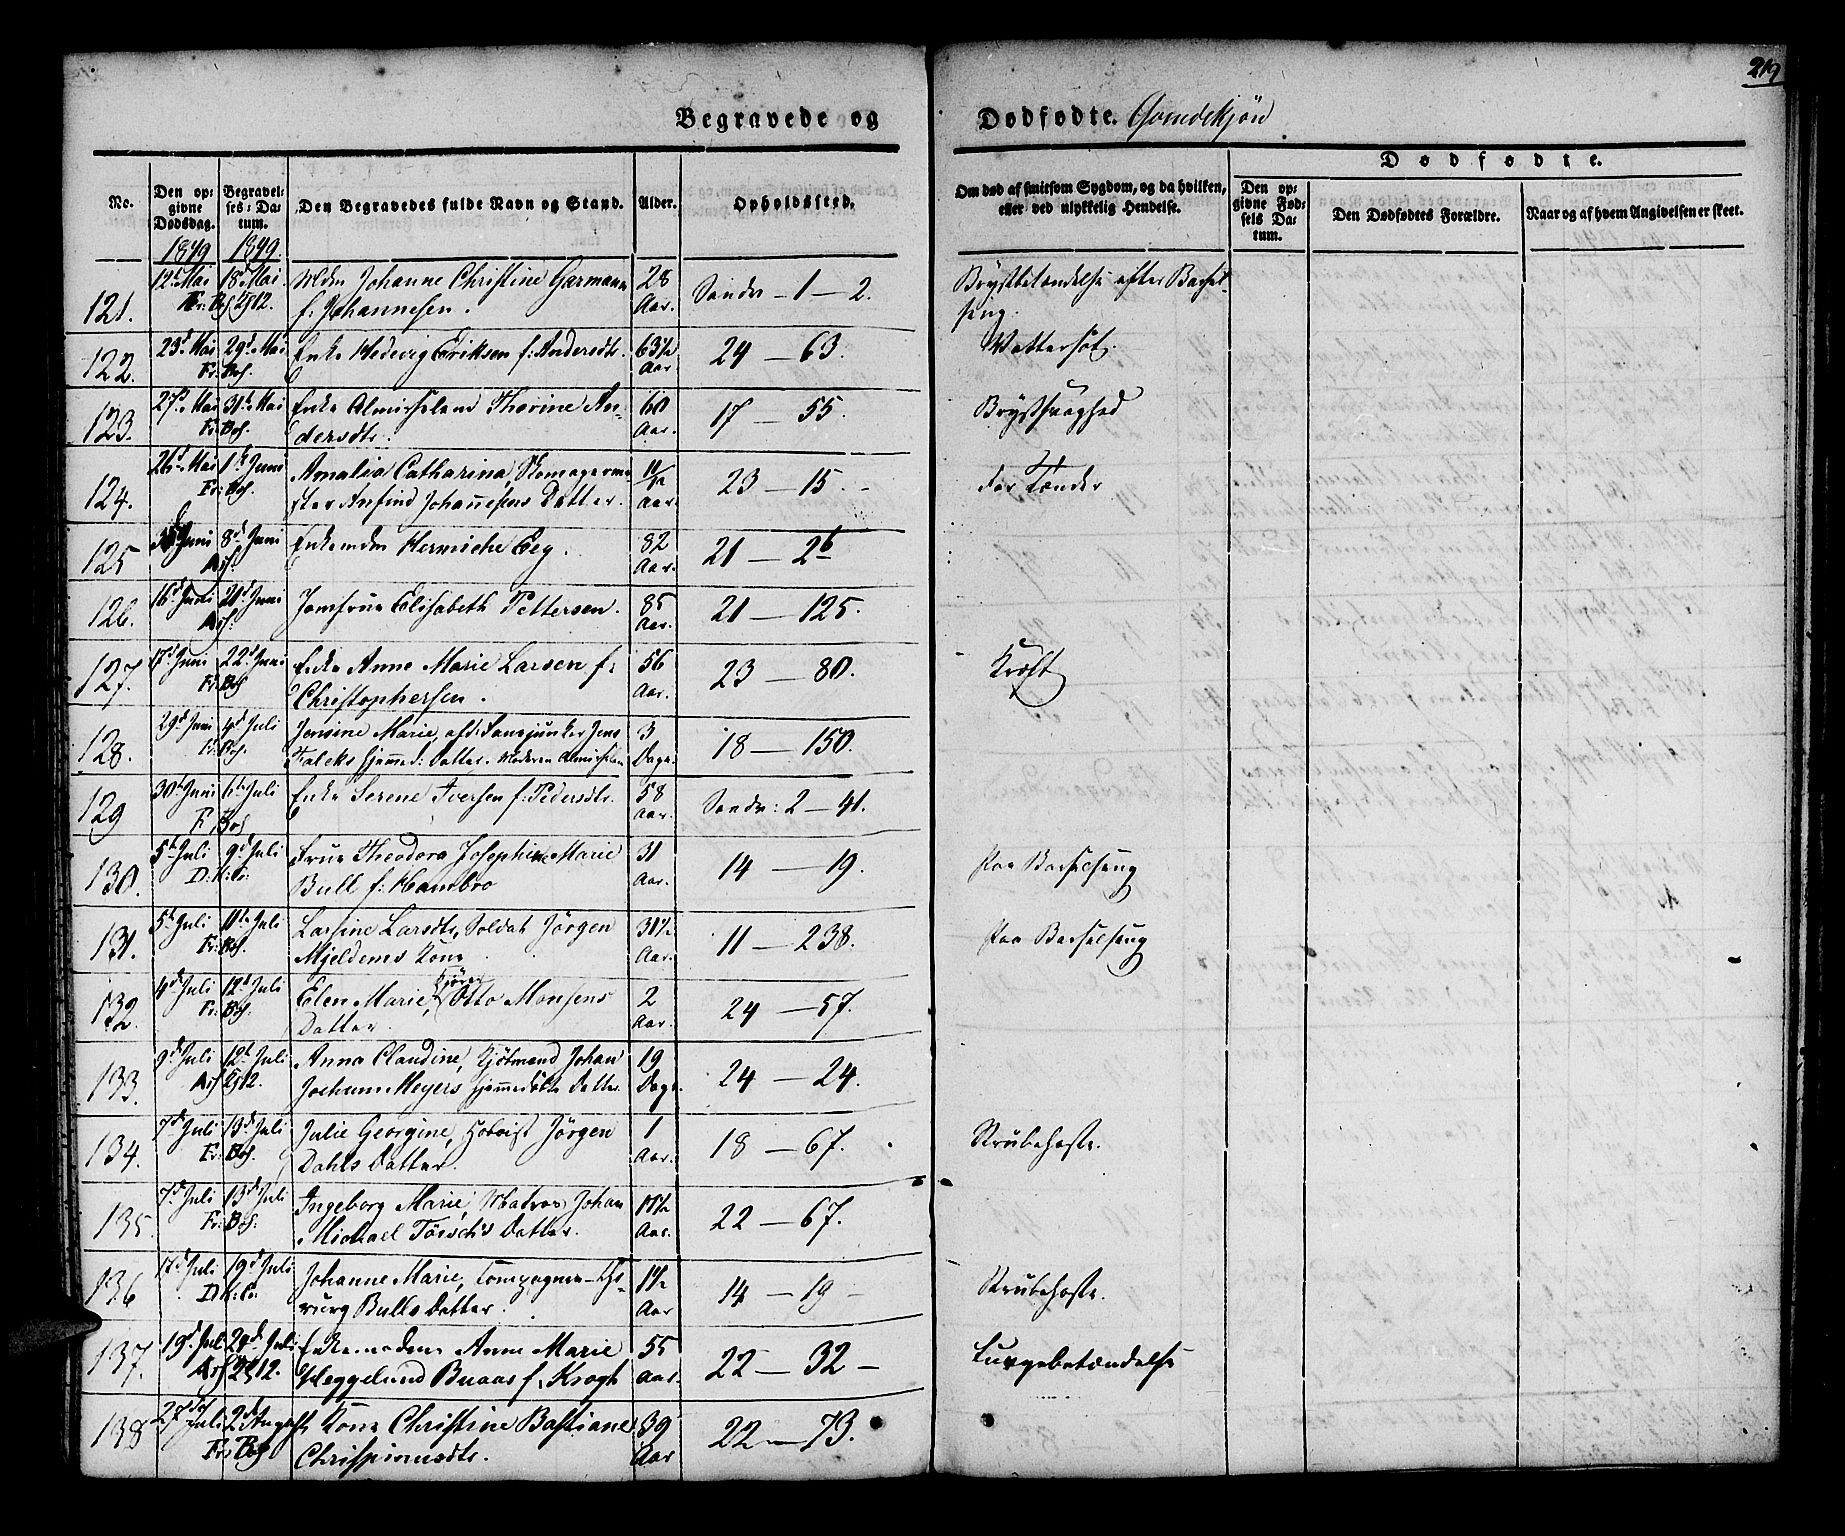 219
Begravede og Dødfødte. Qvindekjøn
Dødfødte.
No.
Den opgivne Dødsdag.
Begravelses-Datum.
Den Begravedes fulde Navn og Stand.
Alder.
Opholdssted.
Om død af smitsom Sygdom, og da hvilken, eller ved ulykkelig Hendelse.
Den opgivne Fødsels Datum.
Den Dødfødtes Forældre.
Naar og af hvem Angivelsen er skeet.
1849 1849.
121. 12te Mai 18de Mai Mdm Johanne Christine Garmann 28 Sandv. - 1 - 2. Brystbetændelse efter Barsel-
f: Johannesen. Aar. seng.
122. 23d Mai 29d Mai Enke Hedevig Eriksen f: Andersdtr. 63½ 24 - 63. Wattersot.
Fr: Bof. Aar.
123. 27de Mai 31te Mai Enke Almisselem Thorine An- 60 17 - 55. Brystsvaghed
Fr: Bof. dersdtr. Aar.
124. 26d Mai 1te Juni Amalia Catharina, Skomagerme- 23 - 15. - der Tænder
Fr: Bof. ster Anfind Johannesens Datter. Aar.
125 Juni 8d Juni Enkemdm Hermiche Eeg. 82 21 - 26
Aar.
126. 16d Juni 21d Juni Jomfrue Elisabeth Pettersen. 85 21 - 125.
Aar.
127. 17d Juni 22d Juni Enke Anne Marie Larsen f: 56 23 - 80. Kræft
Fr: Bof Christophersen. Aar.
128. 29d Juni 4d Juli Jensine Marie, Jens 3 18 - 150.
Fr: Bof. Falcks Datter. Moderen Almisselem Dage.
129 30te Juni 6te Juli Enke Serene Iversen f: Pedersdtr. 58 Sandv: 2 - 41.
F. Bof Aar.
130. 5te Juli 9d Juli Frue Theodora Josephine Marie 31 14 - 19. paa Barselseng
D: K: Bull f: Hambro Aar.
131. 5te Juli 11te Juli Larsine Larsdtr, Soldat Jörgen 31½ 11 - 238. paa Barselseng
Fr: Bof. Mjeldems Kone Aar.
132 4d Juli 12te Juli Elen Marie, Otto Monsens 2 24 - 57.
Fr. Bof. Datter. Aar.
133. 9d Juli 12te Juli Anna Claudine, Kjötmand Johan 19 24 - 24.
Jochum Meyers hjemmedöbte Datter. Dage
134. 7d Juli 13d Juli Julie Georgine, Hoboist Jörgen 1 18 - 67. Strubehoste.
Fr. Bof. Dahls Datter. Aar.
135. 7d Juli 13d Juli Ingeborg Marie, Matros Johan 11½ 22 - 67.
Fr: Bof. Michael Datter. Aar.
136 Juli 19d Juli Johanne Marie, Compagnie-Chi- 1½ 14 - 19 - Strubehoste.
D. K: rurg Bulls Datter. Aar
137. 19d Juli 24d Juli Enkemadame Anne Marie 55 22 - 32 - Lungebetændelse
Heggelund Buaas f. Krogh Aar.
138 27de Juli 2d August Kone Christine Bastiane 39 22 - 73.
Fr: Bof Chrispinusdtr. Aar